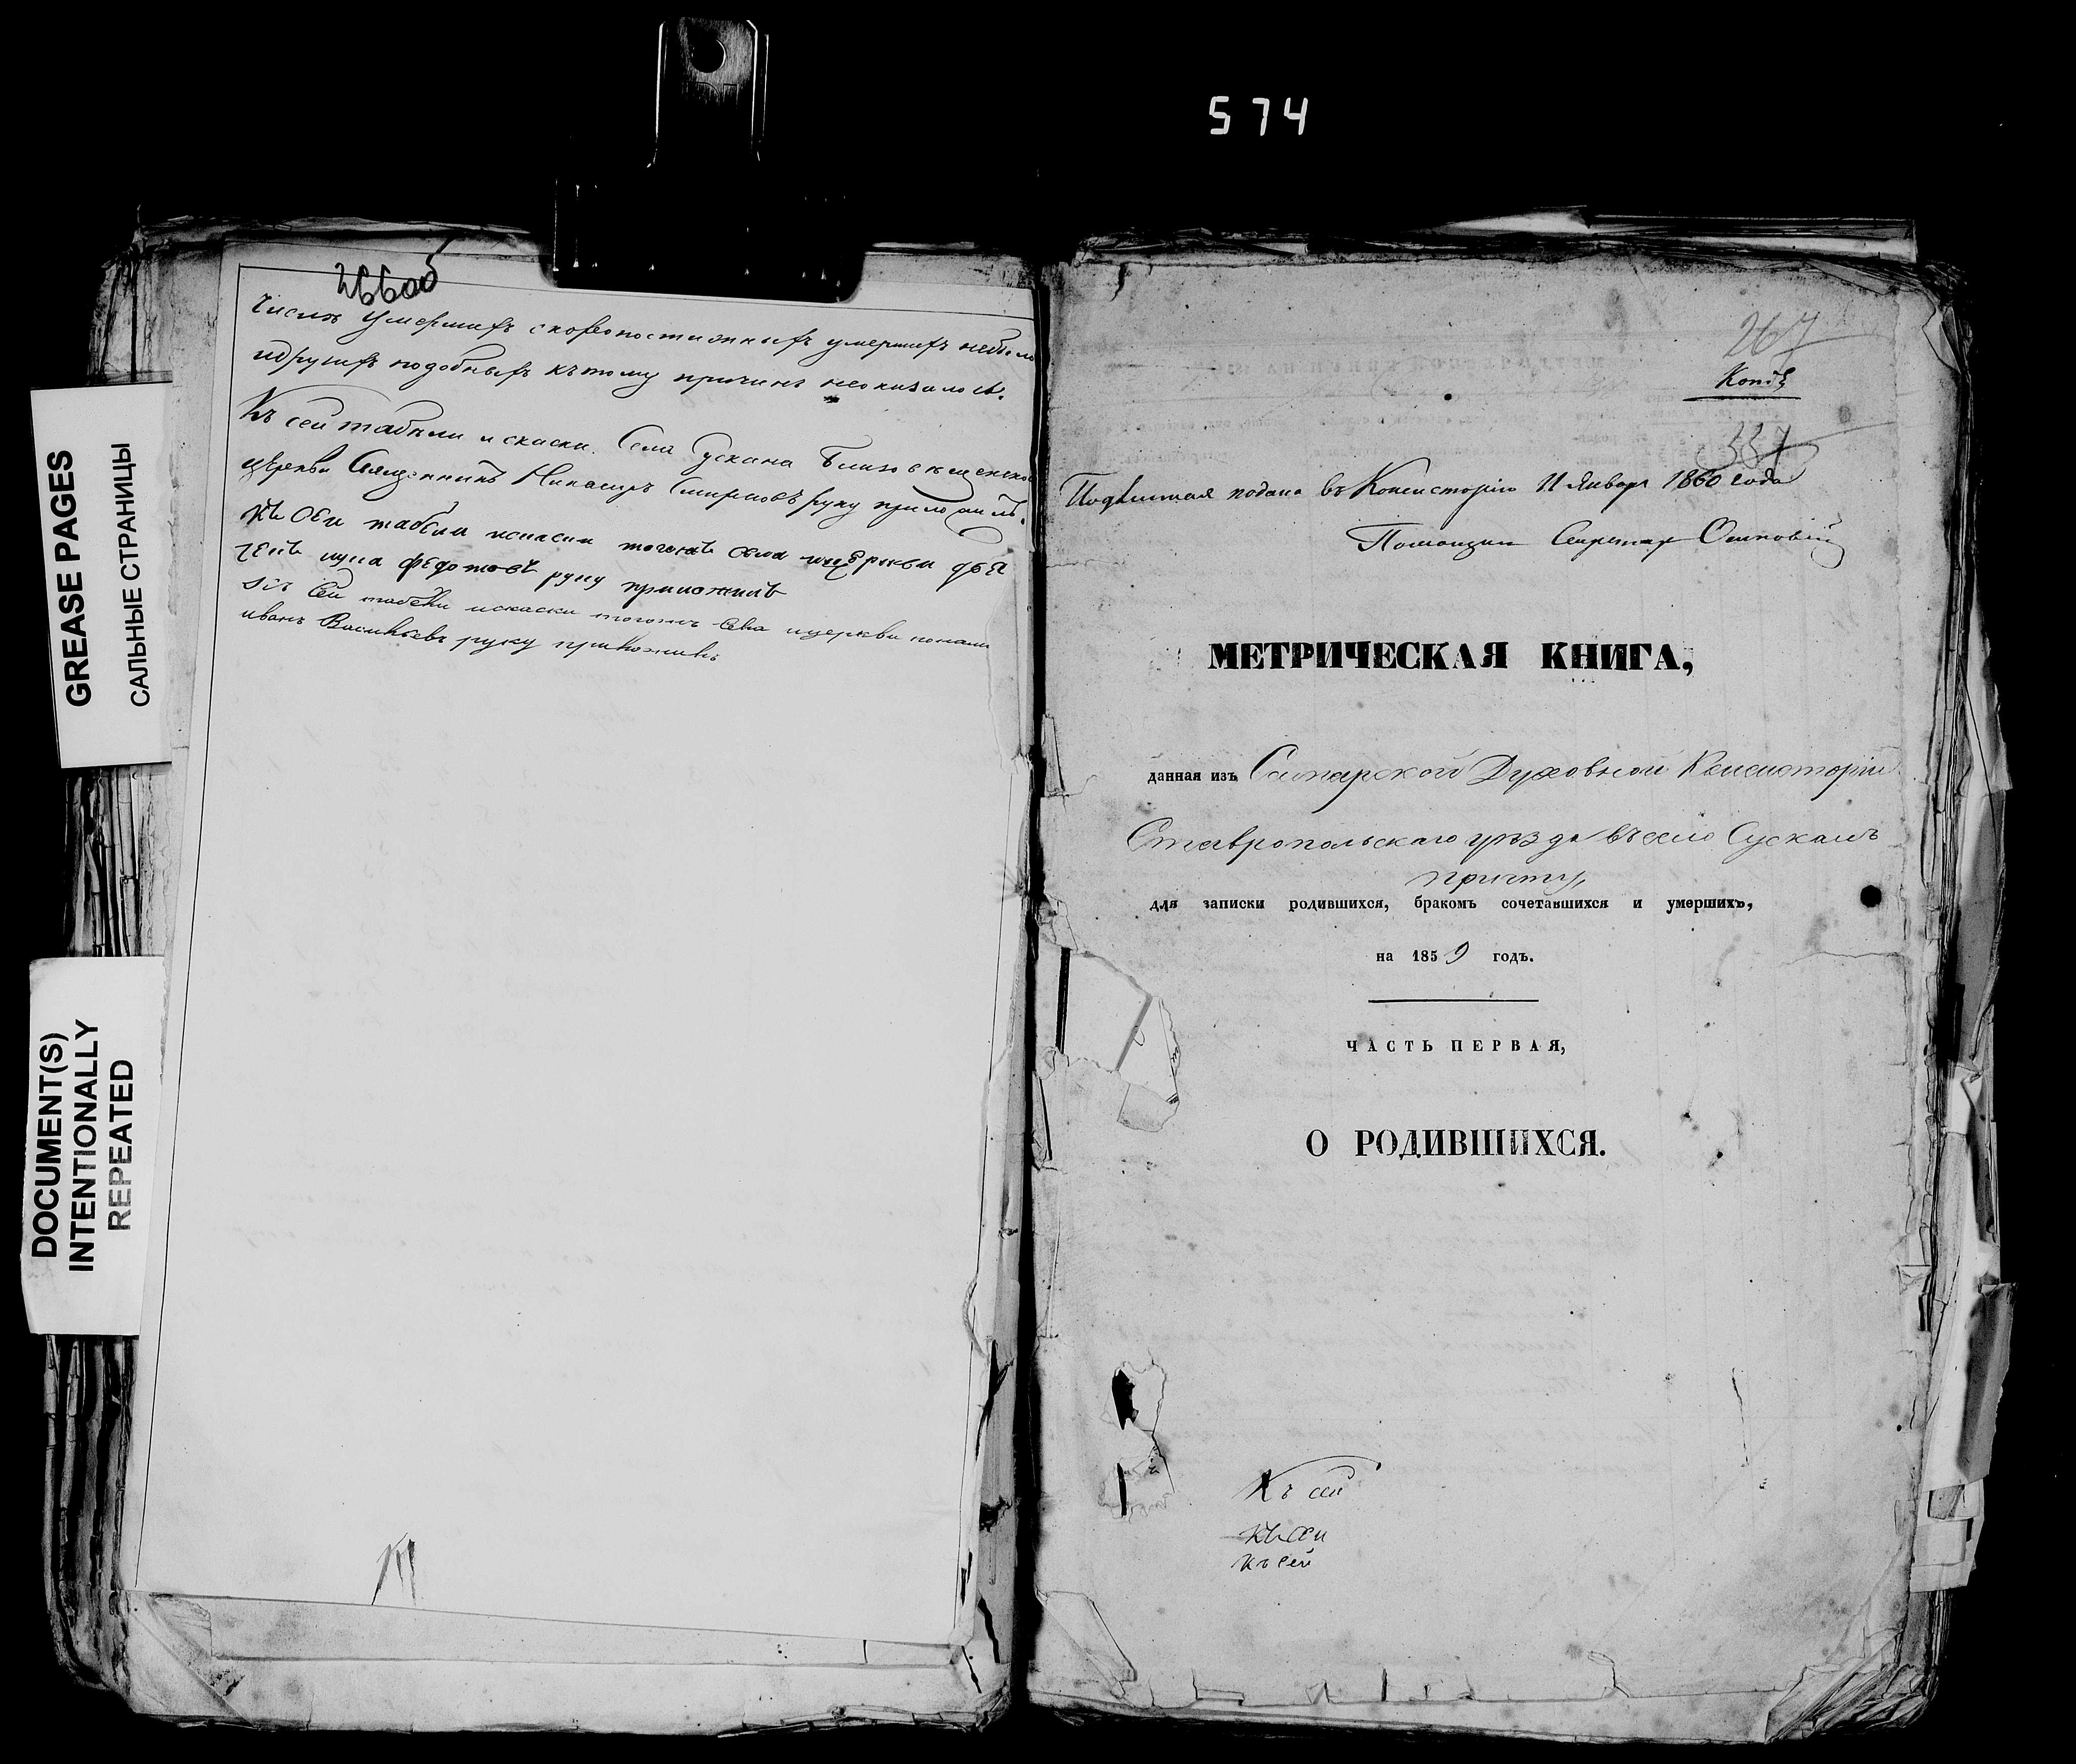 574
GREASE PAGES
САЛЬНЫЕ СТРАНИЦЫ
DOCUMENT(S)
INTENTIONALLY
REPEATED
266об
числѣ умершихъ скоропостижныхъ умершихъ небыло
идругихъ подобныхъ къ тому причинъ неоказалось.
Къ сей табели и скаски. Села Сускана
церкви Священникъ Смирновъ руку приложилъ.
Къ сей табели искаски тогожъ села ицеркви дья
чекъ лука федотовъ руку приложилъ
Къ сей табели искаски тогожъ села ицеркви понам
иванъ Васильевъ руку приложилъ
267
Копія
337
Подлинная подана въ Консисторію 11 Января 1860 года
Помощникъ Секретаря
МЕТРИЧЕСКАЯ КНИГА,
данная изъ Самарской Духовной Консисторіи
Ставропольскаго уѣзда въ село Сусканъ
причту,
для записки родившихся, бракомъ сочетавшихся и умершихъ,
на 1859 годъ.
ЧАСТЬ ПЕРВАЯ,
О РОДИВШИХСЯ.
Къ сей
Къ сей
Къ сей